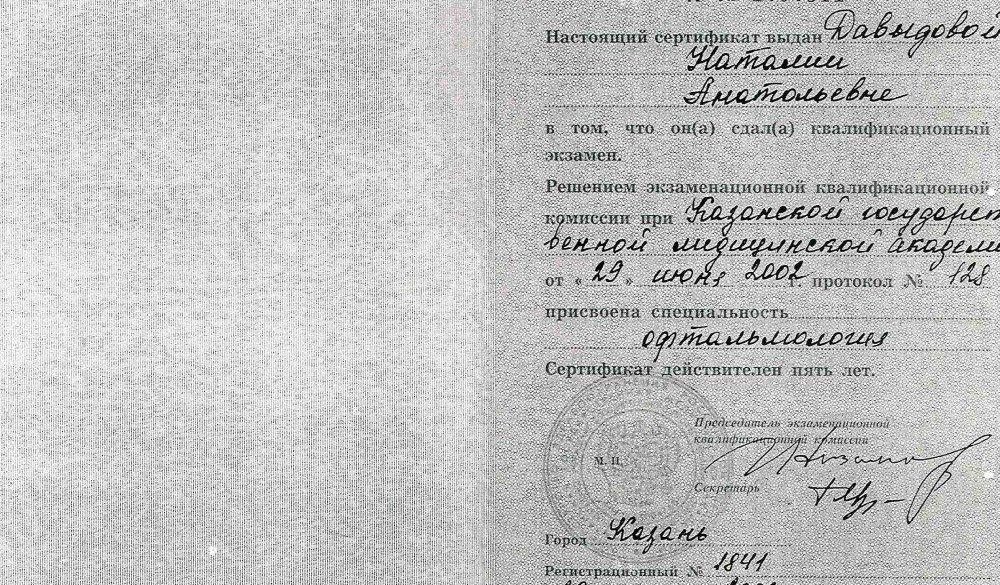 Настоящий сертификат выдан Давыдовой
Наталии
Анатольевне
в том, что он(а) сдал(а) квалификационный
экзамен.
Решением экзаменационной квалификационной
комиссии при Казанской государст
венной медицинской академи
от « 29 » июня 2002 г. протокол № 128
присвоена специальность
офтальмология
Сертификат действителен пять лет.
Председатель экзаменационной
квалификационной комиссии
М. П.
Секретарь
Город Казань
Регистрационный № 1841